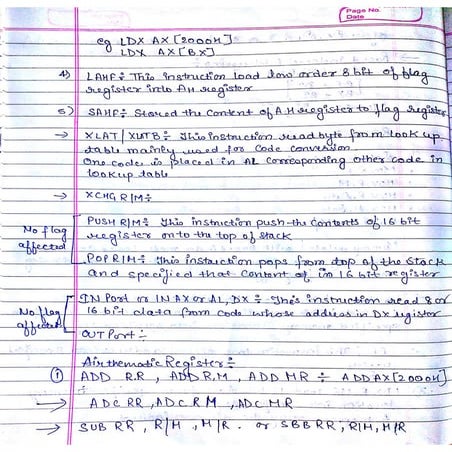 Page No.
Date
eg LDX AX [2000H]
LDX AX [BX]
4) LAHF:- This instruction load low order 8 bit of flag
register into AH register
5) SAHF:- Stored the content of AH register to flag register
→ XLAT / XLATB:- This instruction read byte from look up
table mainly used for code conversion.
One code is placed in AL corresponding other code in
lookup table
→ XCHG R/M:-
No flag affected
PUSH R/M:- This instruction push the contents of 16 bit
register on to the top of stack
POP R/M:- This instruction pops from top of the stack
and specified that content of in 16 bit register
No flag affected
IN Port or IN AX or AL, DX:- This instruction read 8 or
16 bit data from code whose address in DX register
OUT Port:-
Airthematic Register:-
(i) ADD R.R, ADD R,M, ADD M.R :- ADD AX [2000H]
→ ADC RR, ADC R M, ADC M.R
→ SUB RR, R/M, M/R. or SBB RR, R/M, M/R